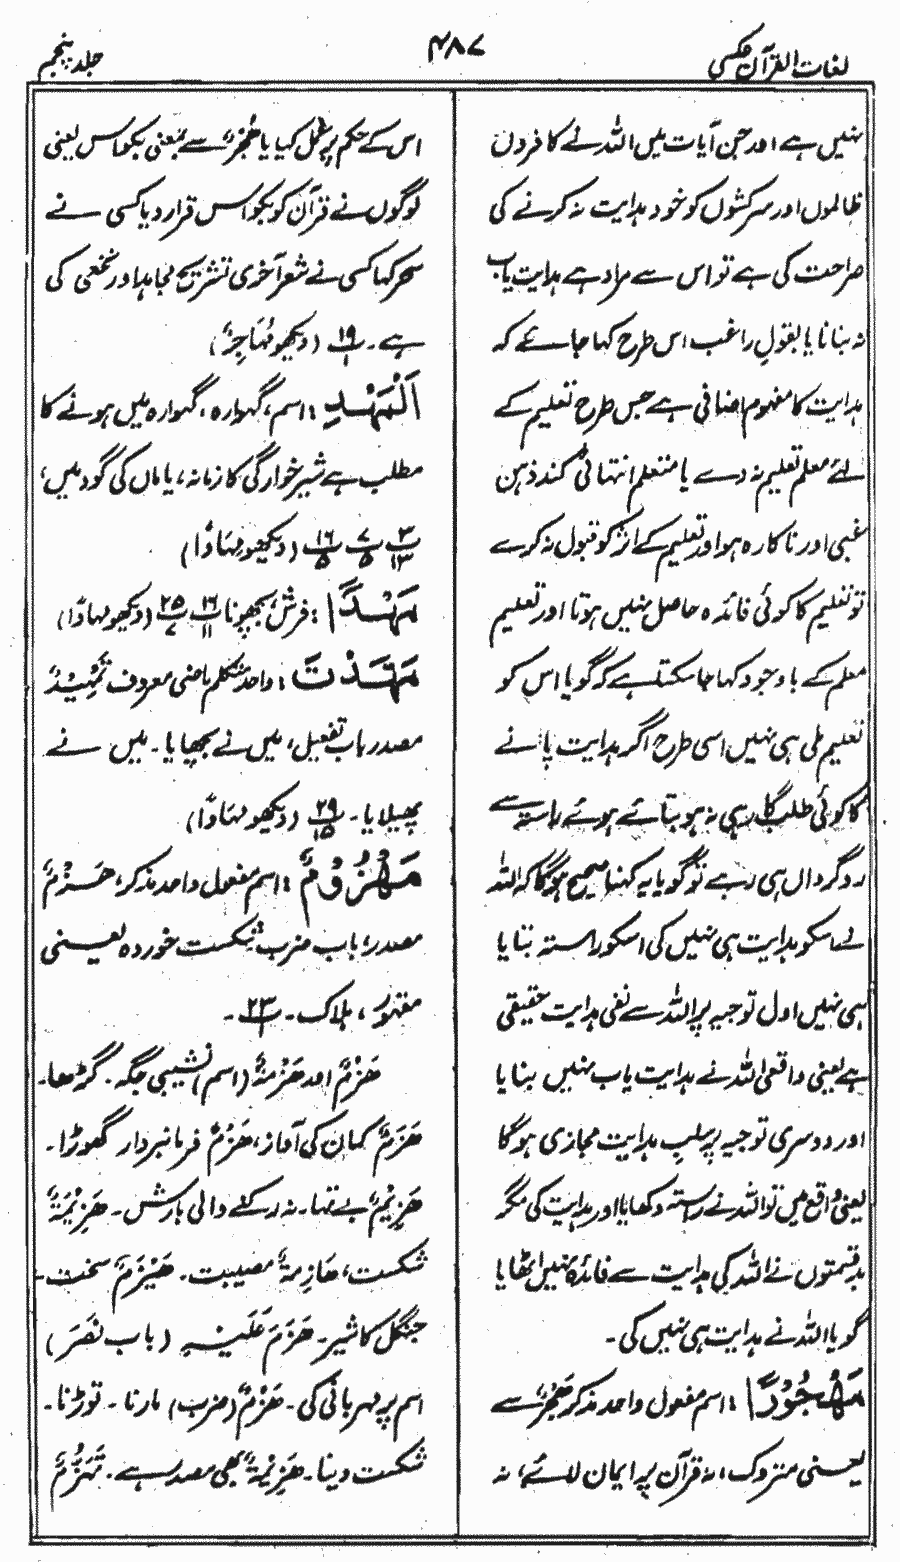 لغات القرآن عکسی
۴۸۷
جلد پنجم
نہیں ہے اور جن آیات میں اللہ نے کافروں
ظالموں اور سرکشوں کو خود ہدایت نہ کرنے کی
صراحت کی ہے تو اس سے مراد ہے ہدایت یاب
نہ بنانا یا بقولِ راغب اس طرح کہا جائے کہ
ہدایت کا مفہوم اضافی ہے جس طرح تعلیم کے
لئے معلم تعلیم نہ دے یا متعلم انتہائی کند ذہن
غبی اور ناکارہ ہو اور تعلیم کے اثر کو قبول نہ کرے
تو تعلیم کا کوئی فائدہ حاصل نہیں ہوتا اور تعلیم
معلم کے باوجود کہا جا سکتا ہے کہ گویا اس کو
تعلیم ملی ہی نہیں اسی طرح اگر ہدایت پانے
کا کوئی طلب گار ہی نہ ہو بتائے ہوئے راستہ سے
روگرداں ہی رہے تو گویا یہ کہنا صحیح ہوگا کہ اللہ
نے اسکو ہدایت ہی نہیں کی اسکو راستہ بتایا
ہی نہیں اول توجیہ پر اللہ سے نفی ہدایت حقیقی
ہے یعنی واقعی اللہ نے ہدایت یاب نہیں بنایا
اور دوسری توجیہ پر سلبِ ہدایت مجازی ہوگا
یعنی واقع میں تو اللہ نے راستہ دکھایا اور ہدایت کی مگر
بدقسمتوں نے اللہ کی ہدایت سے فائدہ نہیں اٹھایا
گویا اللہ نے ہدایت ہی نہیں کی۔
مَهْجُوْرًا: اسم مفعول واحد مذکر هَجْرٌ سے
یعنی متروک، نہ قرآن پر ایمان لائے، نہ
اس کے حکم پر عمل کیا یا هُجْرٌ سے بمعنی بکواس یعنی
لوگوں نے قرآن کو بکواس قرار دیا کسی نے
سحر کہا کسی نے شعر آخری تشریح مجاہد اور نخعی کی
ہے۔ ۱۹/۱ (دیکھو مُهَاجِرٌ)
اَلْمَهْدِ: اسم، گہوارہ، گہوارہ میں ہونے کا
مطلب ہے شیر خوارگی کا زمانہ، یا ماں کی گود میں،
۳/۱۳ ۷/۵ ۱۶/۵ (دیکھو مِهَادًا)
مَهْدًا: فرش، بچھونا ۱۶/۱۱ ۲۵/۷ (دیکھو مہادًا)
مَهَّدْتُّ: واحد متکلم ماضی معروف تَمْهِیْدٌ
مصدر باب تفعیل، میں نے بچھایا۔ میں نے
پھیلایا۔ ۲۹/۱۵ (دیکھو مِهَادًا)
مَهْزُوْمٌ: اسم مفعول واحد مذکر، هَزْمٌ
مصدر، باب ضرب شکست خوردہ یعنی
مقہور، ہلاک۔ ۲۳/۱۰۔
هَزْمٌ اور هَزْمَةٌ (اسم) نشیبی جگہ۔ گڑھا۔
هَزَمٌ کمان کی آواز، هَزِمٌ فرمانبردار گھوڑا۔
هَزِیْمٌ بے تہا۔ نہ رکنے والی بارش۔ هَزِیْمَةٌ
شکست، هَازِمَةٌ مصیبت۔ هَیْزَمٌ سخت۔
جنگل کا شیر۔ هَزَمَ عَلَیْهِ (باب نَصَرَ)
اسم پر مہربانی کی۔ هَزْمٌ (ضرب) مارنا۔ توڑنا۔
شکست دینا۔ هَزِیْمَةٌ بھی مصدر ہے۔ تَهَزُّمٌ